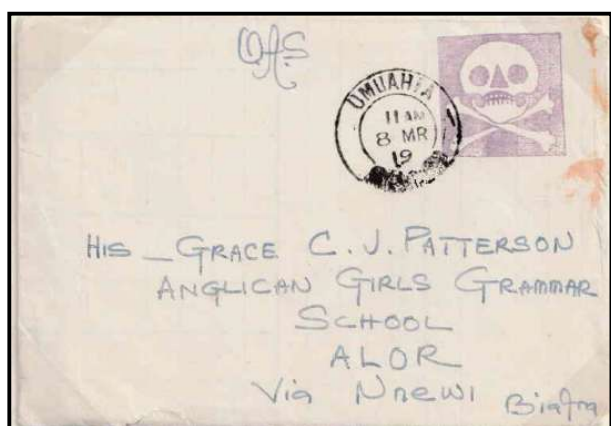 OAS
UMUAHIA 1
11 AM
8 MR
19
HIS - GRACE C. J. PATTERSON
ANGLICAN GIRLS GRAMMAR
SCHOOL
ALOR
Via Nnewi
Biafra